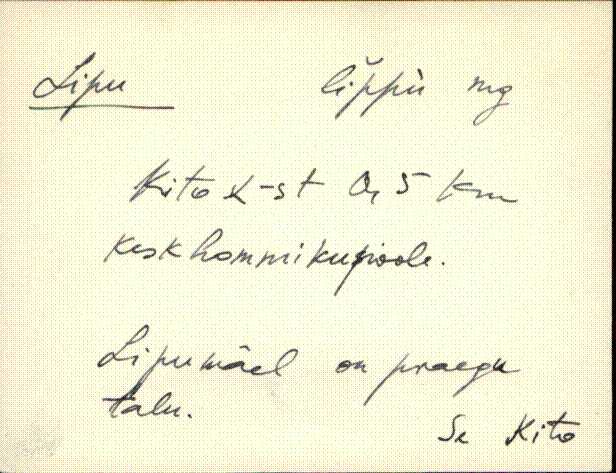 Lipu lĭppù mg
Kito k-st 0,5 km
keskhommikupoole.
Lipumäel on praegu
talu.
Se Kito